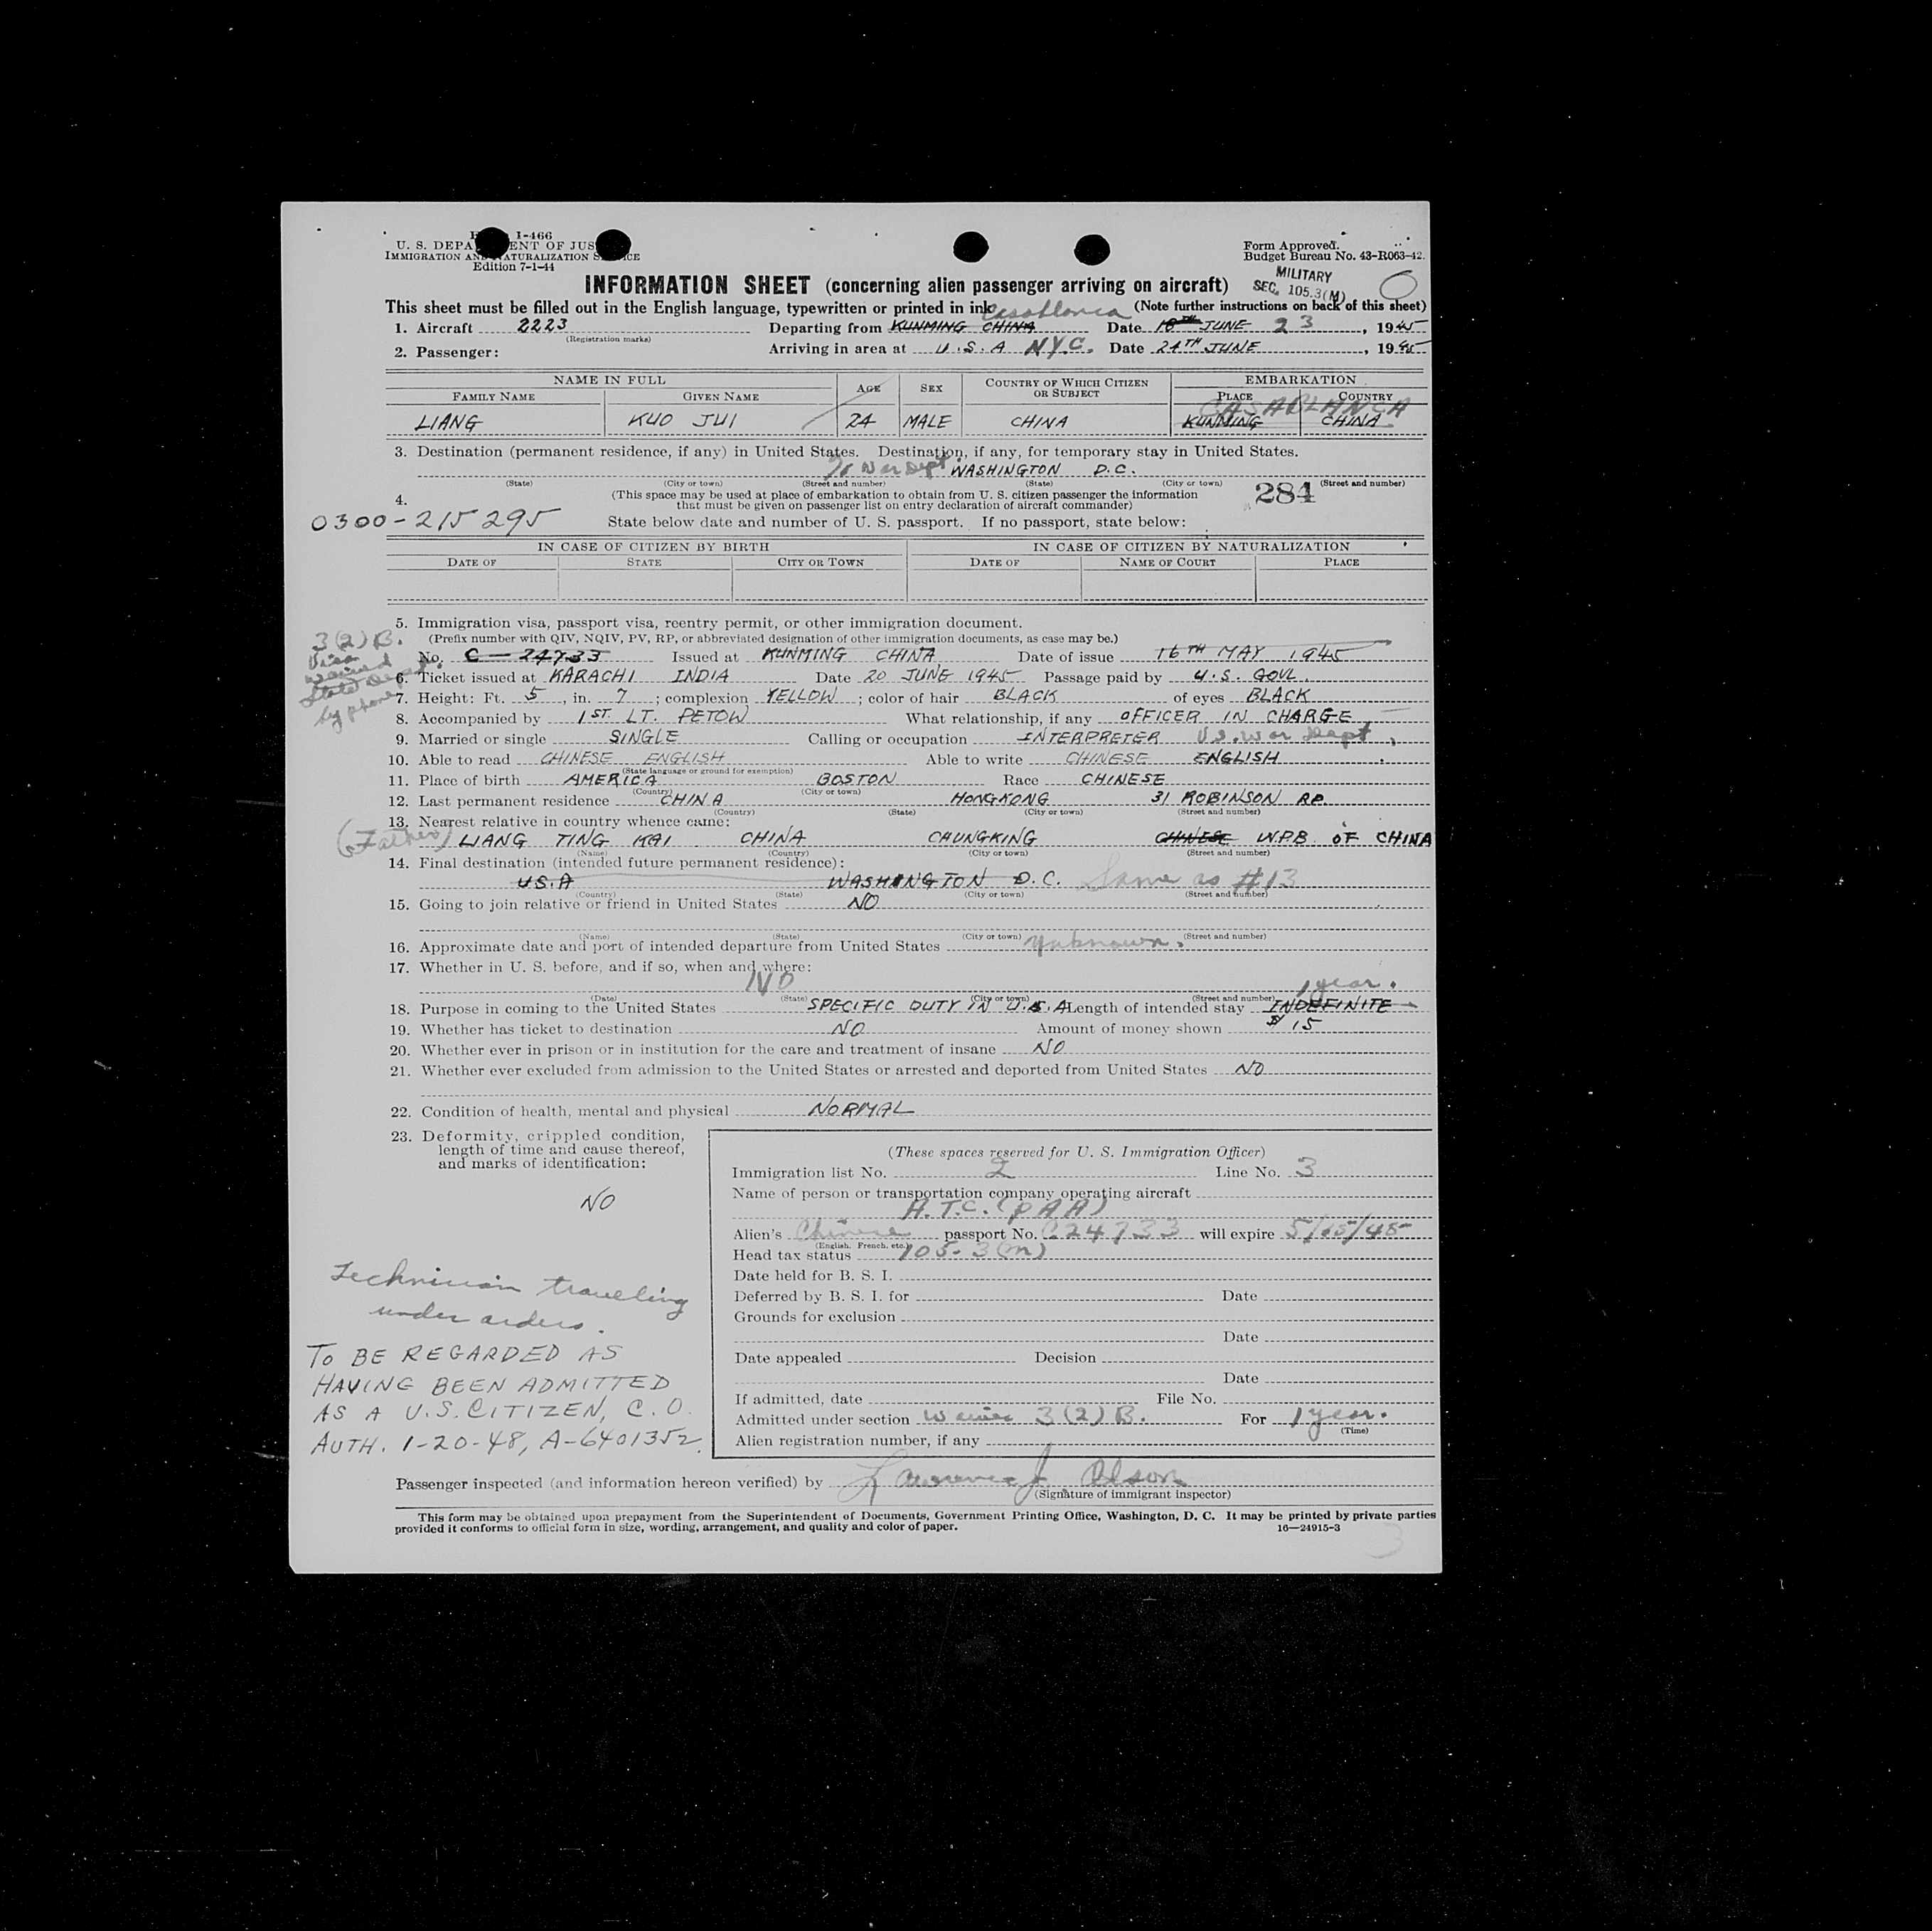 I-466
U. S. DEPA ENT OF JUS
IMMIGRATION AN NATURALIZATION S CE
Edition 7-1-44
Form Approved.
Budget Bureau No. 43-R063-42.
MILITARY
SEC. 105.3(M)
INFORMATION SHEET (concerning alien passenger arriving on aircraft)
This sheet must be filled out in the English language, typewritten or printed in ink (Note further instructions on back of this sheet)
Casablanca
1. Aircraft 2223 Departing from KUNMING CHINA Date 18TH JUNE 23, 1945
(Registration marks)
2. Passenger: Arriving in area at U.S.A N.Y.C. Date 24TH JUNE, 1945
NAME IN FULL AGE SEX COUNTRY OF WHICH CITIZEN OR SUBJECT EMBARKATION
FAMILY NAME GIVEN NAME PLACE COUNTRY
CASABLANCA
LIANG KUO JUI 24 MALE CHINA KUNMING CHINA
3. Destination (permanent residence, if any) in United States. Destination, if any, for temporary stay in United States.
% War Dept WASHINGTON D.C.
(State) (City or town) (Street and number) (State) (City or town) (Street and number)
284
4. (This space may be used at place of embarkation to obtain from U. S. citizen passenger the information
that must be given on passenger list on entry declaration of aircraft commander)
0300-215295 State below date and number of U. S. passport. If no passport, state below:
IN CASE OF CITIZEN BY BIRTH IN CASE OF CITIZEN BY NATURALIZATION
DATE OF STATE CITY OR TOWN DATE OF NAME OF COURT PLACE
5. Immigration visa, passport visa, reentry permit, or other immigration document.
(Prefix number with QIV, NQIV, PV, RP, or abbreviated designation of other immigration documents, as case may be.)
3(2)B.
Visa
waived
State Dept.
by phone
No. C-24733 Issued at KUNMING CHINA Date of issue 16TH MAY 1945
6. Ticket issued at KARACHI INDIA Date 20 JUNE 1945 Passage paid by U.S. GOVL.
7. Height: Ft. 5, in. 7; complexion YELLOW; color of hair BLACK of eyes BLACK
8. Accompanied by 1ST. LT. PETOW What relationship, if any OFFICER IN CHARGE
9. Married or single SINGLE Calling or occupation INTERPRETER U.S. War Dept.
10. Able to read CHINESE ENGLISH Able to write CHINESE ENGLISH
(State language or ground for exemption)
11. Place of birth AMERICA BOSTON Race CHINESE
(Country) (City or town)
12. Last permanent residence CHINA HONGKONG 31 ROBINSON RD.
(Country) (State) (City or town) (Street and number)
13. Nearest relative in country whence came:
(Father) LIANG TING KAI CHINA CHUNGKING CHINESE W.P.B. OF CHINA
(Name) (Country) (City or town) (Street and number)
14. Final destination (intended future permanent residence):
U.S.A WASHINGTON D.C. Same as #13
(Country) (State) (City or town) (Street and number)
15. Going to join relative or friend in United States NO
(Name) (State) (City or town) (Street and number)
16. Approximate date and port of intended departure from United States Unknown.
17. Whether in U. S. before, and if so, when and where:
NO 1 year.
(Date) (State) (City or town) (Street and number)
18. Purpose in coming to the United States SPECIFIC DUTY IN U.S.A Length of intended stay INDEFINITE
19. Whether has ticket to destination NO Amount of money shown $15
20. Whether ever in prison or in institution for the care and treatment of insane NO
21. Whether ever excluded from admission to the United States or arrested and deported from United States NO
22. Condition of health, mental and physical NORMAL
23. Deformity, crippled condition,
length of time and cause thereof,
and marks of identification:
NO
Technician traveling
under orders.
TO BE REGARDED AS
HAVING BEEN ADMITTED
AS A U.S. CITIZEN, C.O.
AUTH. 1-20-48, A-6401352.
(These spaces reserved for U. S. Immigration Officer)
Immigration list No. 2 Line No. 3
Name of person or transportation company operating aircraft
A.T.C. (PAA)
Alien's Chinese passport No. C24733 will expire 5/15/48
(English, French, etc.)
Head tax status 105-3(m)
Date held for B. S. I.
Deferred by B. S. I. for Date
Grounds for exclusion
Date
Date appealed Decision
Date
If admitted, date File No.
Admitted under section Waiver 3(2)B. For 1 year.
(Time)
Alien registration number, if any
Passenger inspected (and information hereon verified) by Lawrence J. Olson
(Signature of immigrant inspector)
This form may be obtained upon prepayment from the Superintendent of Documents, Government Printing Office, Washington, D. C. It may be printed by private parties
provided it conforms to official form in size, wording, arrangement, and quality and color of paper. 16—24915-3
3